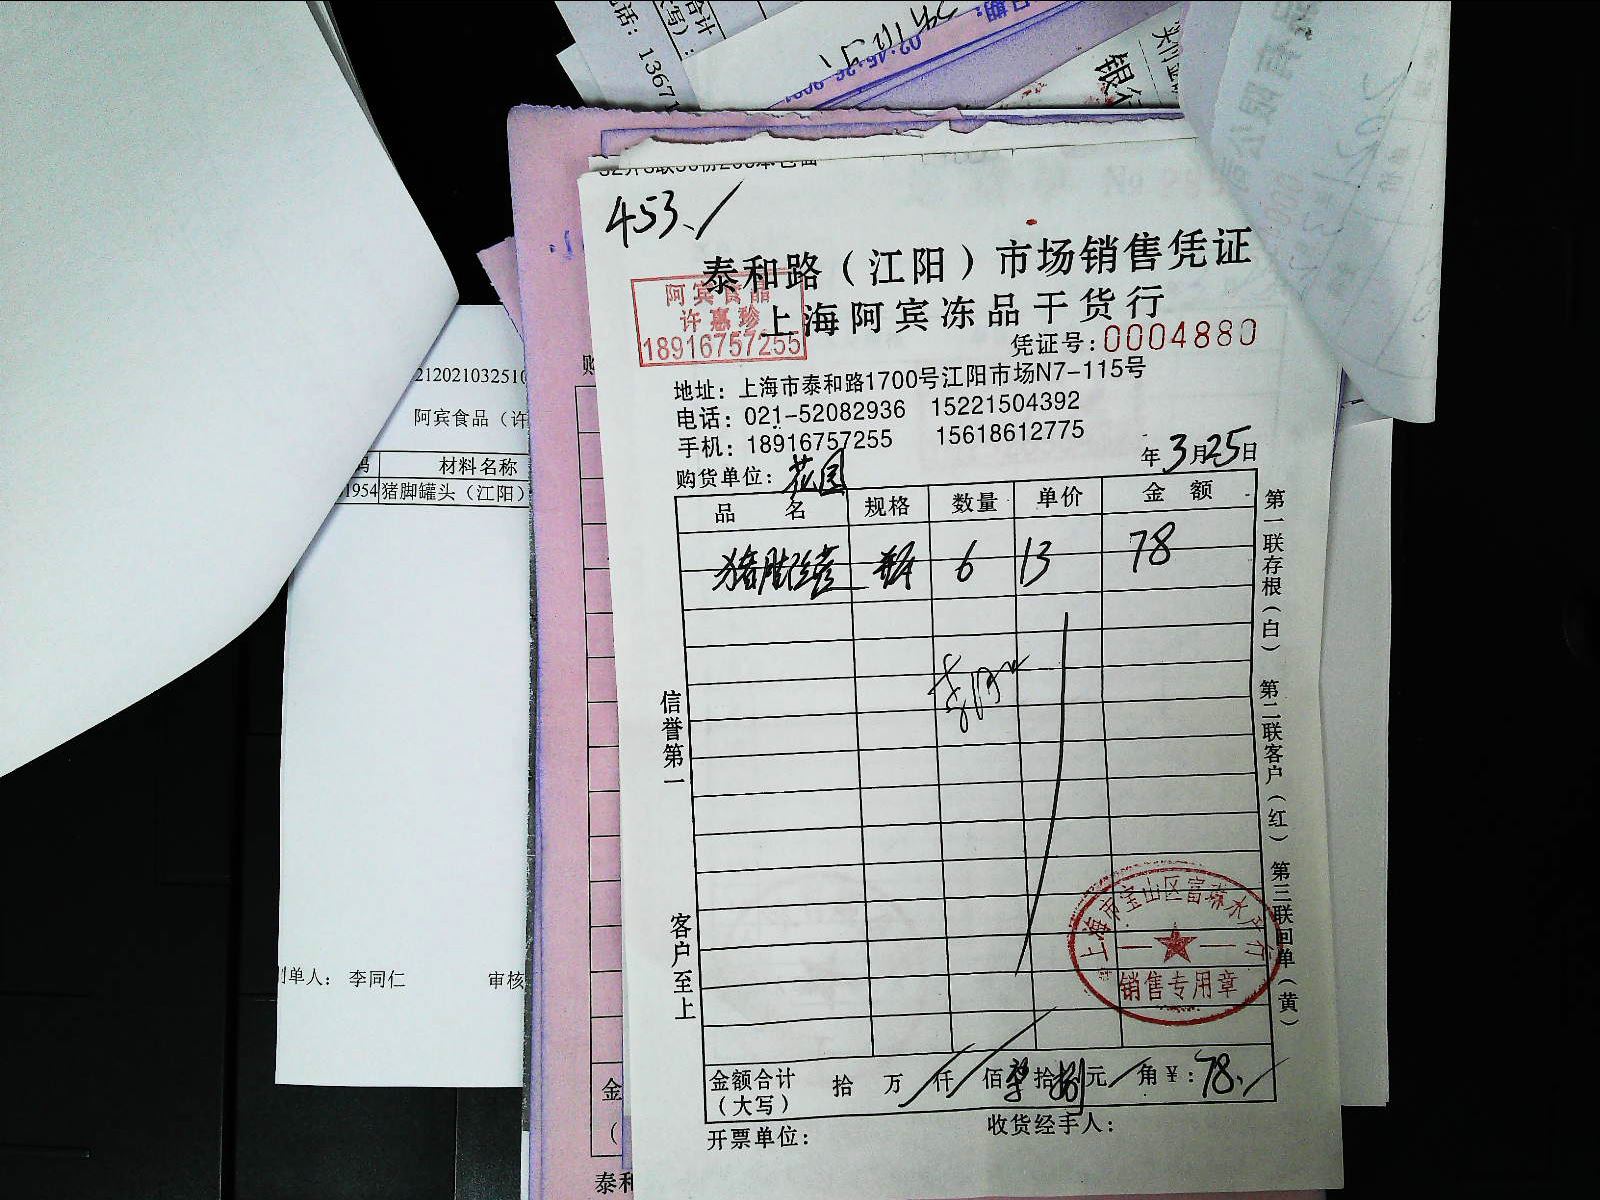 电话: 13671
合计
银行
32开3联50份200本包面
453
泰和路（江阳）市场销售凭证
上海阿宾冻品干货行
阿宾食品
许惠珍
18916757255
凭证号:0004880
地址: 上海市泰和路1700号江阳市场N7-115号
电话: 021-52082936 15221504392
手机: 18916757255 15618612775
购货单位: 花园
年3月25日
品 名 规格 数量 单价 金 额
猪脚 6 13 78
信誉第一
客户至上
第一联存根（白） 第二联客户（红） 第三联回单（黄）
上海市宝山区富 水产行
销售专用章
金额合计（大写） 拾 万 仟 佰柒拾捌元 角 ¥: 78.
开票单位: 收货经手人:
212021032510
阿宾食品（许
材料名称
1954 猪脚罐头（江阳）
制单人: 李同仁 审核
购
金
泰和